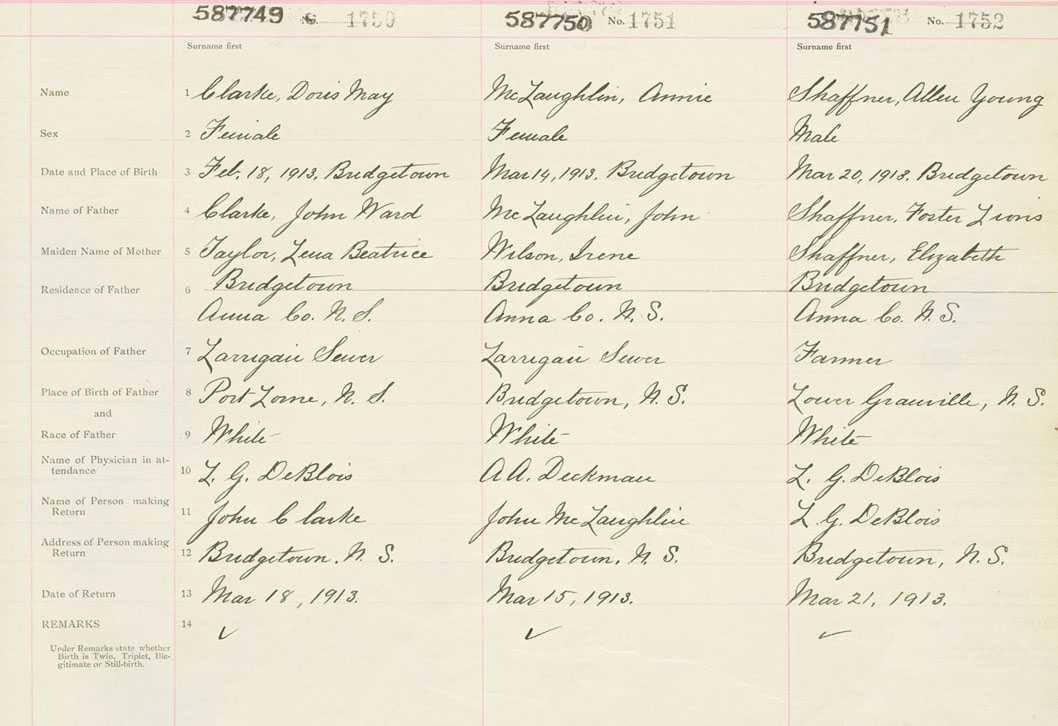 587749 1750 587750 No. 1751 587751 No. 1752
Surname first Surname first Surname first
Name 1 Clarke, Doris May McLaughlin, Annie Shaffner, Allen Young
Sex 2 Female Female Male
Date and Place of Birth 3 Feb. 18, 1913. Bridgetown Mar 14, 1913. Bridgetown Mar 20, 1913. Bridgetown
Name of Father 4 Clarke, John Ward McLaughlin, John Shaffner, Foster
Maiden Name of Mother 5 Taylor, Lena Beatrice Wilson, Irene Shaffner, Elizabeth
Residence of Father 6 Bridgetown Bridgetown Bridgetown
Anna Co. N. S. Anna Co. N. S. Anna Co. N. S.
Occupation of Father 7 Larrigan Sewer Larrigan Sewer Farmer
Place of Birth of Father 8 Port Lorne, N. S. Bridgetown, N. S. Lower Granville, N. S.
and
Race of Father 9 White White White
Name of Physician in at-
tendance 10 L. G. DeBlois A. A. Deckman L. G. DeBlois
Name of Person making
Return 11 John Clarke John McLaughlin L. G. DeBlois
Address of Person making
Return 12 Bridgetown. N. S. Bridgetown, N. S. Bridgetown, N. S.
Date of Return 13 Mar 18, 1913. Mar 15, 1913. Mar 21, 1913.
REMARKS 14 ✓ ✓ ✓
Under Remarks state whether
Birth is Twin, Triplet, Ille-
gitimate or Still-birth.